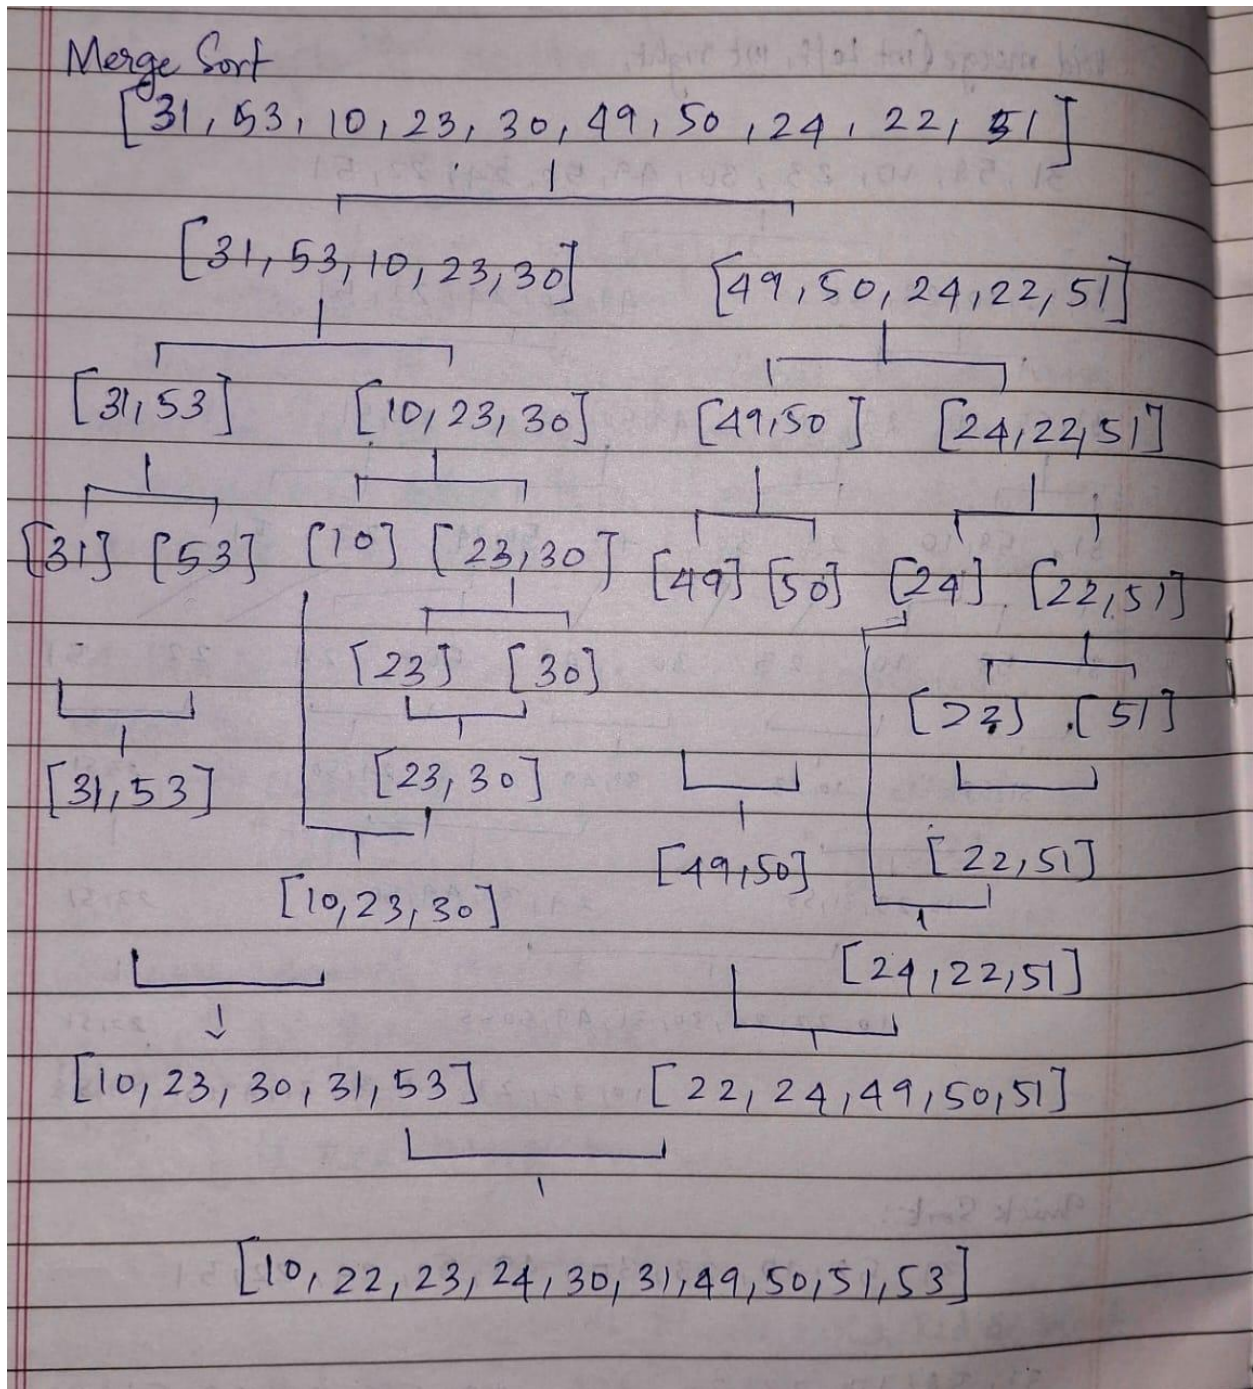 Merge Sort
[31, 53, 10, 23, 30, 49, 50, 24, 22, 51]
[31, 53, 10, 23, 30] [49, 50, 24, 22, 51]
[31, 53] [10, 23, 30] [49, 50] [24, 22, 51]
[31] [53] [10] [23, 30] [49] [50] [24] [22, 51]
[23] [30] [22] [51]
[31, 53] [23, 30] [49, 50] [22, 51]
[10, 23, 30] [24, 22, 51]
[10, 23, 30, 31, 53] [22, 24, 49, 50, 51]
[10, 22, 23, 24, 30, 31, 49, 50, 51, 53]